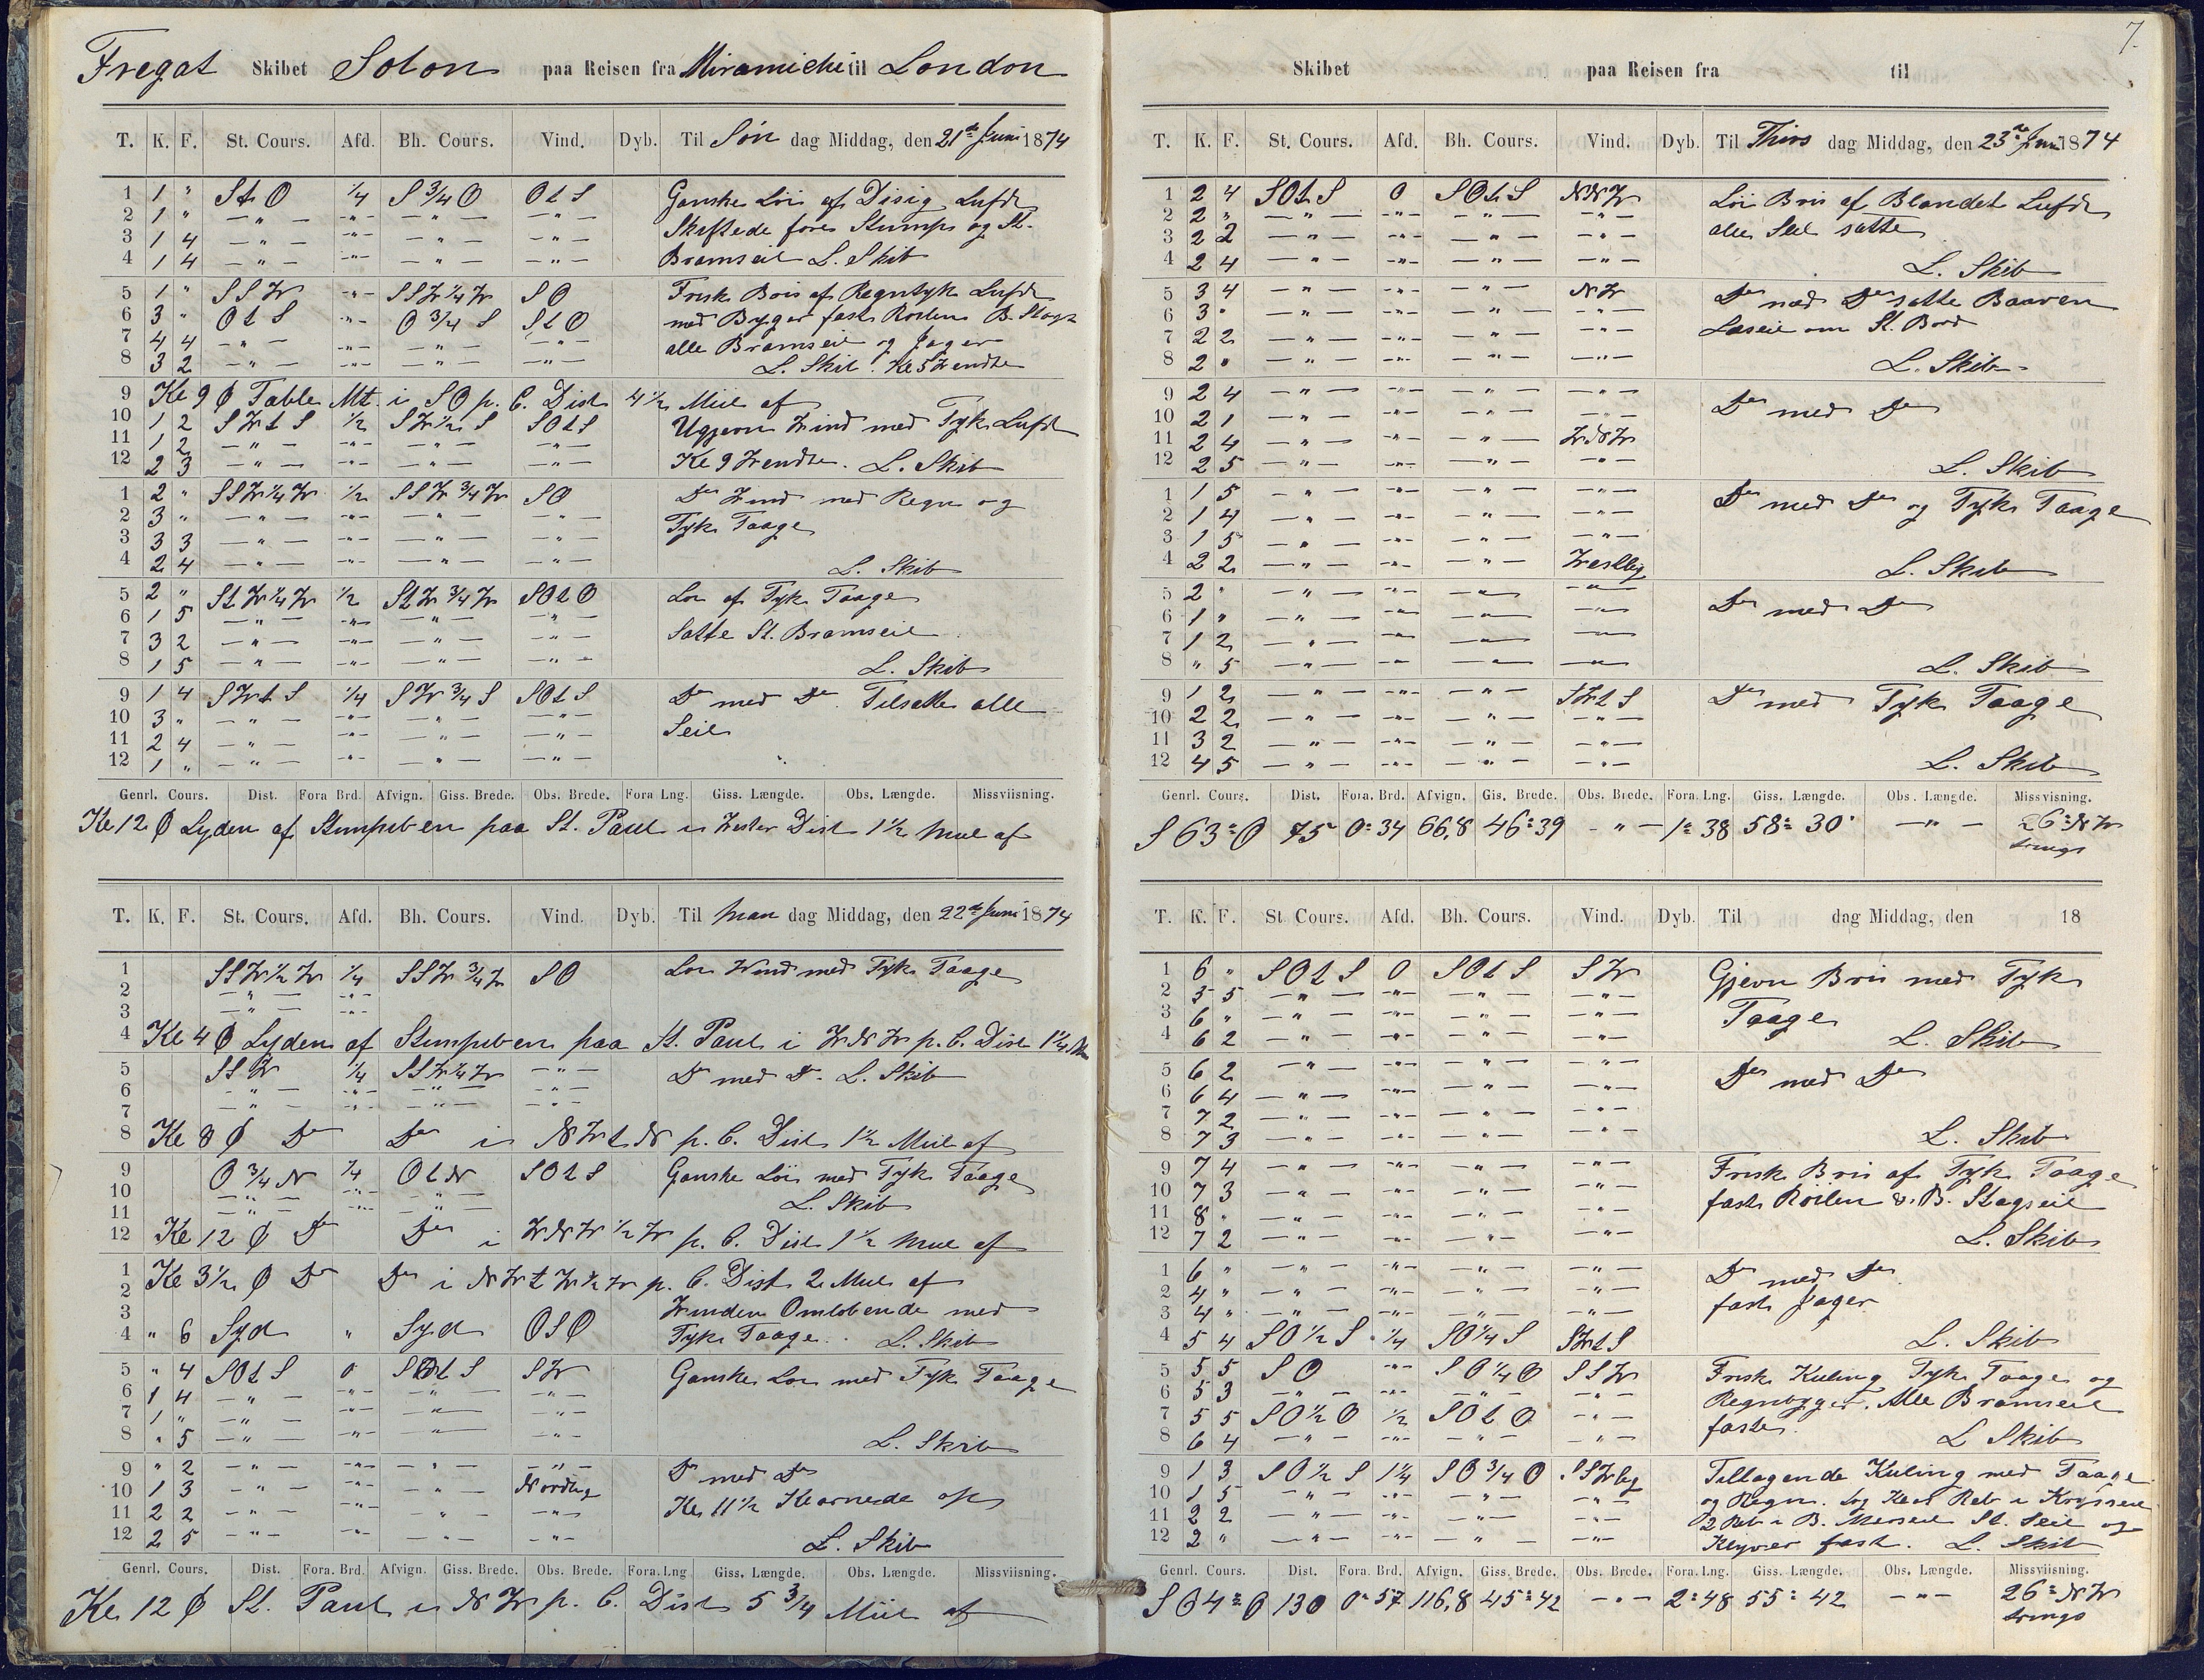 Fregat Skibet Solon paa Reisen fra Miramichi til London
T. K. F. St. Cours. Afd. Bh. Cours. Vind. Dyb. Til Søn dag Middag, den 21de Juni 1874
1 1 " St O 1/4 S 3/4 O OtS Ganske Löi af Disig Luft
2 1 " — " — -"- — " — — " — Skiftede fore Stumps og St.
3 1 4 — " — -"- — " — — " — Bramseil L. Skib
4 1 4 — " — -"- — " — — " —
5 1 " SSW -"- SSW 1/4 W SO Frisk Bris af Regntyk Luft
6 3 " OtS -"- O 3/4 S StO med Byger fast Roilen B. Stags
7 4 4 — " — -"- — " — — " — alle Bramseil og Jager
8 3 2 — " — -"- — " — — " — L. Skib. Kl 5 Wendte
9 Kl 9 Ø Table Mt. i SO p. C. Dist 4 1/2 Miil af
10 1 2 SWtS 1/2 SW 1/2 S SOtS Ugjevn Wind med Tyk Luft
11 1 2 — " — -"- — " — — " — Kl 9 Wendte. L. Skib
12 2 3 — " — -"- — " — — " —
1 2 " SSW 1/4 W 1/2 SSW 3/4 W SO Do Wind med Regn og
2 3 " — " — -"- — " — — " — Tyk Taage
3 3 3 — " — -"- — " — — " —
4 2 4 — " — -"- — " — — " — L. Skib
5 2 " StW 1/4 W 1/2 StW 3/4 W SOtO Löi af Tyk Taage
6 1 5 — " — -"- — " — — " — Satte St. Bramseil
7 3 2 — " — -"- — " — — " —
8 1 5 — " — -"- — " — — " — L. Skib
9 1 4 SWtS 1/4 SW 3/4 S SOtS Do med Do. Tilsatte alle
10 3 " — " — -"- — " — — " — Seil
11 2 4 — " — -"- — " — — " —
12 1 " — " — -"- — " — — " —
Genrl. Cours. Dist. Fora Brd. Afvign. Giss. Brede. Obs. Brede. Fora Lng. Giss. Længde. Obs. Længde. Missviisning.
Kl 12 Ø Lyden af Stumpiben paa St. Paul i Vester Dist 1 1/2 Miil af
T. K. F. St. Cours. Afd. Bh. Cours. Vind. Dyb. Til Man dag Middag, den 22de Juni 1874
1 SSW 1/2 W 1/4 SSW 3/4 W SO Löi Wind med Tyk Taage
2 — " — -"-
3 — " — -"-
4 Kl 4 Ø Lyden af Stumpiben paa St. Paul i WNW p. C. Dist 1 1/4 M
5 SSW 1/4 SSW 1/4 W — " — Do med Do. L. Skib
6 — " — -"- — " — — " —
7 — " — -"- — " — — " —
8 Kl 8 Ø Do Do i NWtN p. C. Dist 1 1/2 Miil af
9 O 3/4 N 1/4 OtN SOtS Ganske Löi med Tyk Taage
10 — " — -"- — " — L. Skib
11 — " — -"- — " —
12 Kl 12 Ø Do Do i WNW 1/2 W p. C. Dist 1 1/2 Miil af
1 Kl 3 1/2 Ø Do Do i NWtW 1/2 W p. C. Dist 2 Miil af
2
3 Winden Omlöbende med
4 " 6 Syd " Syd OSO Tyk Taage. L. Skib
5 " 4 SOtS 0 SOtS SW Ganske Löi med Tyk Taage
6 1 4 — " — -"- — " — — " —
7 1 " — " — -"- — " — — " —
8 " 5 — " — -"- — " — — " — L. Skib
9 " 2 — " — -"- — " — — " — Do med Do
10 1 3 — " — -"- — " — Nordlig Kl 11 1/2 Klarnede op
11 2 2 — " — -"- — " — — " —
12 2 5 — " — -"- — " — — " — L. Skib
Genrl. Cours. Dist. Fora. Brd. Afvign. Giss. Brede. Obs. Brede. Fora. Lng Giss. Længde. Obs. Længde. Missviisning.
Kl 12 Ø St. Paul i NW p. C. Dist 5 3/4 Miil af
7.
Skibet paa Reisen fra til
T. K. F. St. Cours. Afd. Bh. Cours. Vind. Dyb. Til Thirs dag Middag, den 23de Juni 1874
1 2 4 SOtS 0 SOtS NNW Löi Bris af Blandet Luft
2 2 " — " — -"- — " — — " — alle Seil satte
3 2 2 — " — -"- — " — — " —
4 2 4 — " — -"- — " — — " — L. Skib
5 3 4 — " — -"- — " — NW Do med Do satte Baaven
6 3 " — " — -"- — " — — " — Læseil om St. Bord
7 2 2 — " — -"- — " — — " —
8 2 " — " — -"- — " — — " — L. Skib
9 2 4 — " — -"- — " — — " — Do med Do
10 2 1 — " — -"- — " — — " —
11 2 4 — " — -"- — " — WNW
12 2 5 — " — -"- — " — — " — L. Skib
1 1 5 — " — -"- — " — — " — Do med Do og Tyk Taage
2 1 4 — " — -"- — " — — " —
3 1 5 — " — -"- — " — — " —
4 2 2 — " — -"- — " — Westlig L. Skib
5 2 " — " — -"- — " — — " — Do med Do
6 1 " — " — -"- — " — — " —
7 1 2 — " — -"- — " — — " —
8 " 5 — " — -"- — " — — " — L. Skib
9 1 2 — " — -"- — " — SWtS Do med Tyk Taage
10 2 2 — " — -"- — " — — " —
11 3 2 — " — -"- — " — — " —
12 4 5 — " — -"- — " — — " — L. Skib
Genrl. Cours. Dist. Fora. Brd. Afvign. Gis. Brede. Obs. Brede. Fora. Lng. Giss. Længde. Obs. Længde. Missvisning.
S 63° O 75 0° 34 66,8 46° 39 — " — 1° 38 58° 30' — " — 26° NW
T. K. F. St Cours. Afd. Bh. Cours. Vind. Dyb. Til dag Middag, den 18
1 6 " SOtS 0 SOtS SW Gjevn Bris med Tyk
2 5 5 — " — -"- — " — — " — Taage
3 6 " — " — -"- — " — — " —
4 6 2 — " — -"- — " — — " — L. Skib
5 6 2 — " — -"- — " — — " — Do med Do
6 6 4 — " — -"- — " — — " —
7 7 2 — " — -"- — " — — " —
8 7 3 — " — -"- — " — — " — L. Skib
9 7 4 — " — -"- — " — — " — Frisk Bris af Tyk Taage
10 7 3 — " — -"- — " — — " — fast Roilen & B. Stagseil
11 8 " — " — -"- — " — — " —
12 7 2 — " — -"- — " — — " — L. Skib
1 6 " — " — -"- — " — — " — Do med Do
2 4 " — " — -"- — " — — " — fast Jager
3 4 " — " — -"- — " — — " —
4 5 4 SO 1/2 S 1/4 SO 1/4 S SWtS L. Skib
5 5 5 SO -"- SO 1/4 O SSW Frisk Kuling Tyk Taage og
6 5 3 — " — -"- — " — — " — Regnbyger. Alle Bramseil
7 5 5 SO 1/2 O 1/2 SOtO — " — faste.
8 6 4 — " — -"- — " — — " — L Skib
9 1 3 SO 1/2 S 1 1/4 SO 3/4 O SSWlig Tiltagende Kuling med Taage
10 1 5 — " — -"- — " — — " — og Regn. Reb i Krysseil
11 2 2 — " — -"- — " — — " — 2 Reb i B. Merseil St. Seil og
12 2 " — " — -"- — " — — " — Klyver fast. L. Skib
Genrl. Cours. Dist. Fora. Brd. Afvign. Giss. Brede. Obs. Brede. Fora. Lng. Giss. Længde. Obs. Længde. Missviisning.
S 64° O 130 0° 57 116,8 45° 42 — " — 2° 48 55° 42 — " — 26° NW